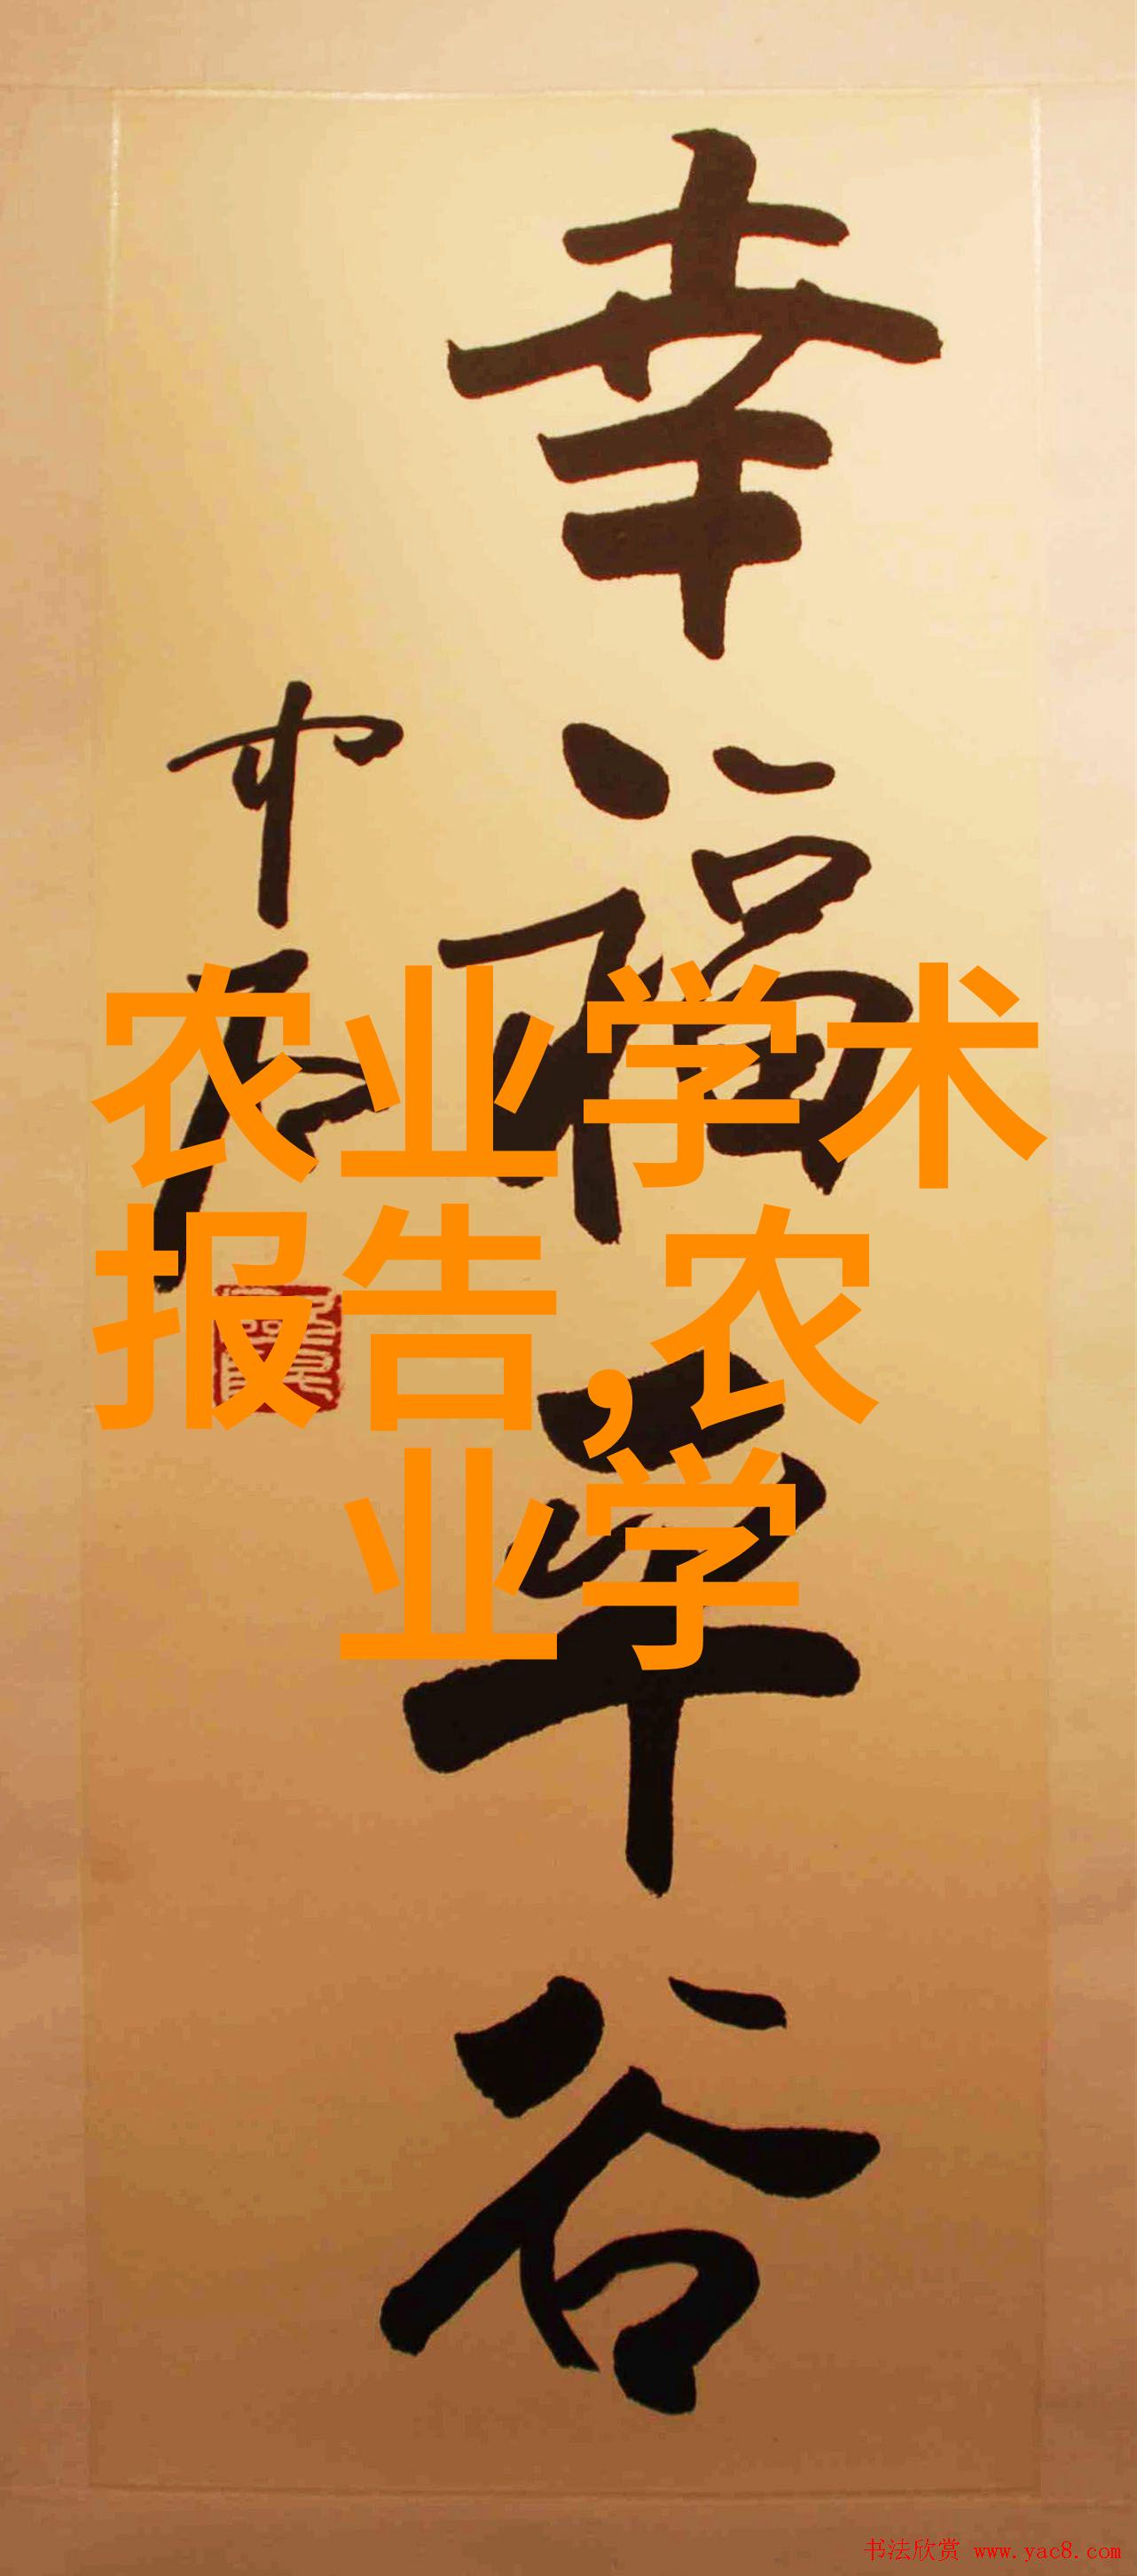 幸福平谷
中石
农业学术
报告,农
业学
书法欣赏 www.yac8.com